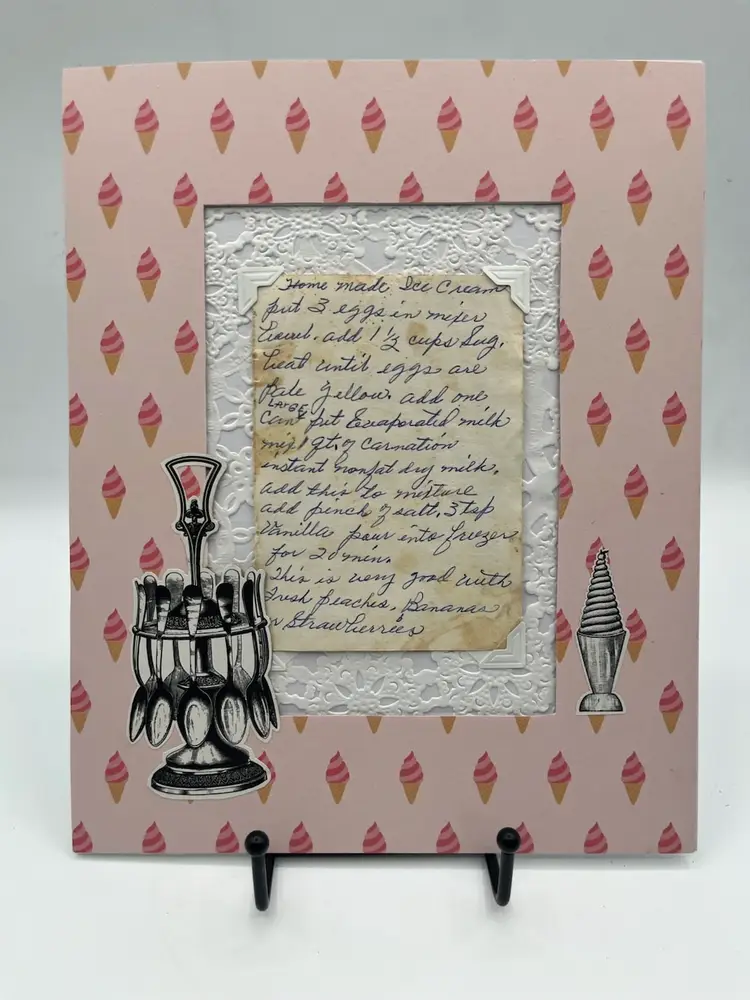 Home made Ice Cream
put 3 eggs in mixer
bowl. add 1 1/2 cups Sug.
beat until eggs are
Pale Yellow. add one
LARGE
can pet Evaporated milk
mix 1 qt. of Carnation
instant nonfat dry milk.
add this to mixture
add pinch of salt, 3 tsp
Vanilla pour into freezer
for 20 min.
This is very good with
Fresh peaches, Bananas
or Strawberries